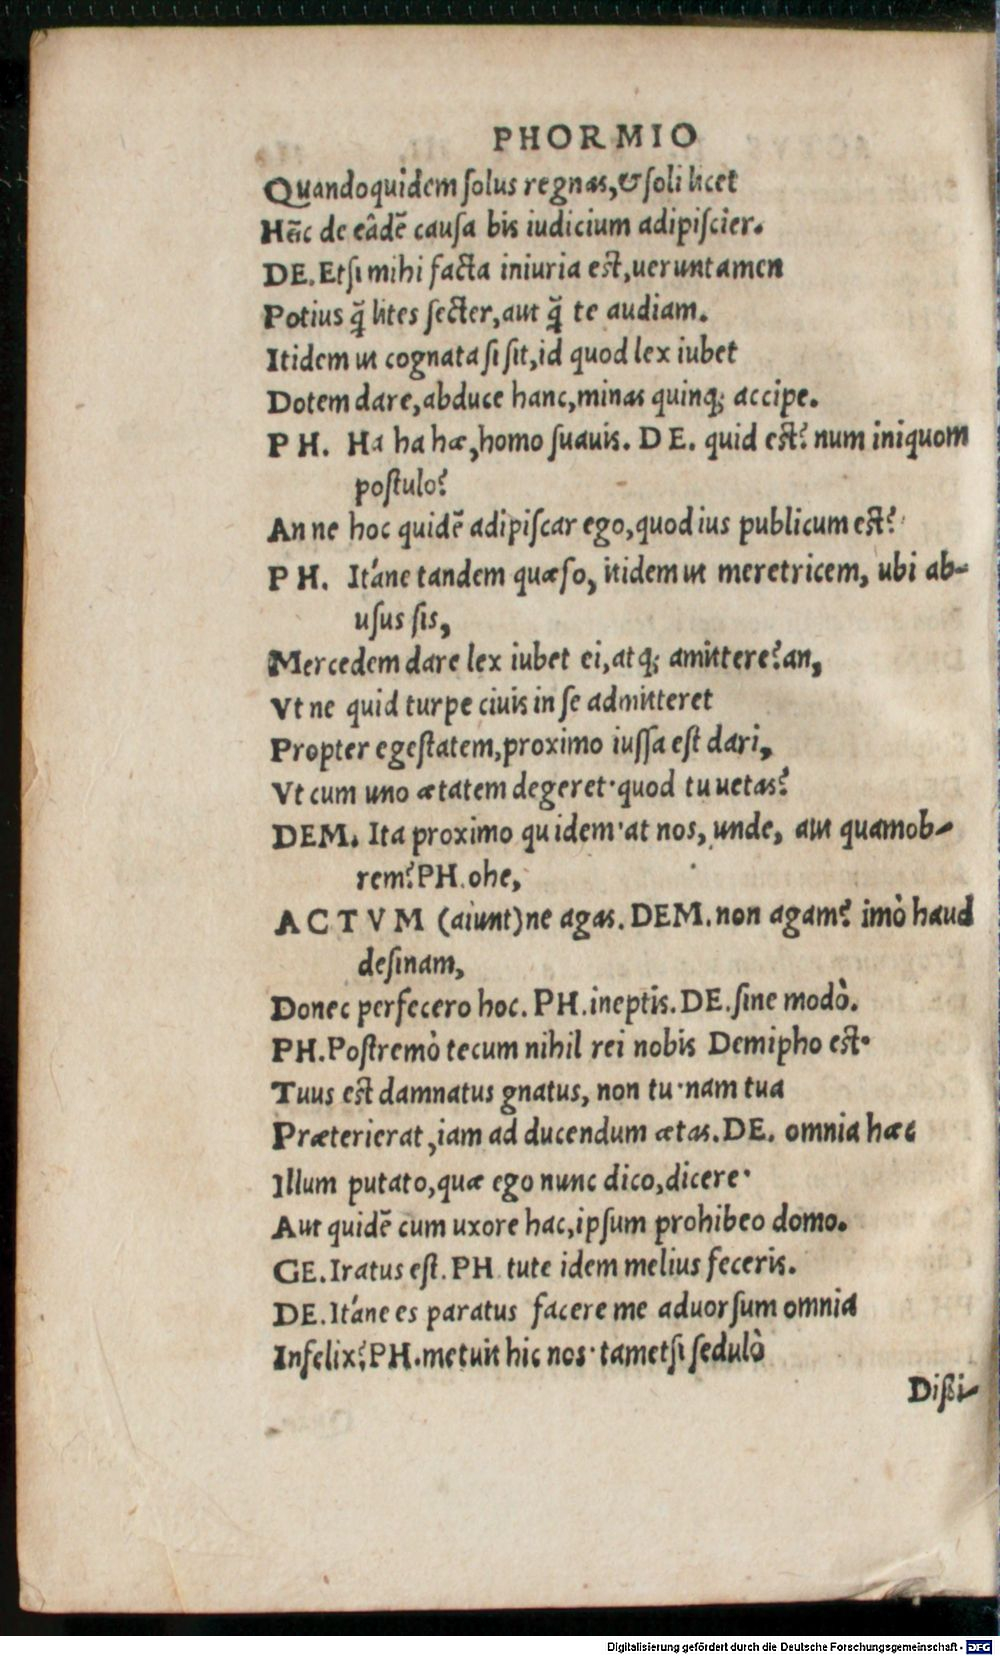 PHORMIO
Quandoquidem ſolus regnas,& ſoli licet
Hēīc de eâdē cauſa bis iudicium adipiſcier.
DE. Etſi mihi facta iniuria eſt,ueruntamen
Potius q̃ lites ſecter,aut q̃ te audiam.
Itidem ut cognata ſi ſit,id quod lex iubet
Dotem dare,abduce hanc,minas quinq; accipe.
PH. Ha ha hæ,homo ſuauis. DE. quid eſt? num iniquom
poſtulo?
An ne hoc quidē adipiſcar ego,quod ius publicum eſt?
PH. Itáne tandem quæſo, itidem ut meretricem, ubi ab-
uſus ſis,
Mercedem dare lex iubet ei,atq; amittere? an,
Vt ne quid turpe ciuis in ſe admitteret
Propter egeſtatem,proximo iuſſa eſt dari,
Vt cum uno ætatem degeret·quod tu uetas?
DEM. Ita proximo quidem·at nos, unde, aut quamob-
rem? PH. ohe,
ACTVM (aiunt)ne agas. DEM. non agam? imò haud
deſinam,
Donec perfecero hoc. PH. ineptis. DE. ſine modò.
PH. Poſtremò tecum nihil rei nobis Demipho eſt·
Tuus eſt damnatus gnatus, non tu·nam tua
Præterierat,iam ad ducendum ætas. DE. omnia hæc
Illum putato,quæ ego nunc dico,dicere·
Aut quidē cum uxore hac,ipſum prohibeo domo.
GE. Iratus eſt. PH tute idem melius feceris.
DE. Itáne es paratus facere me aduorſum omnia
Infelix? PH. metuit hic nos·tametſi ſedulò
Dißi-
Digitalisierung gefördert durch die Deutsche Forschungsgemeinschaft - DFG